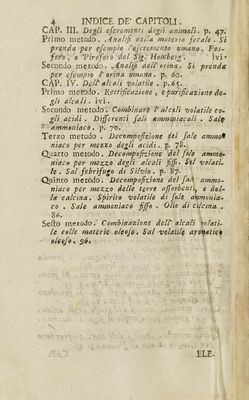 4 INDICE DE' CAPITOLI.
CAP. III. Degli escrementi degli animali. p. 47.
Primo metodo. Analisi della materia fecale. Si
prenda per esempio l'escremento umano. Fos-
foro, o Piroforo del Sig. Homberg. ivi.
Secondo metodo. Analisi dell'orina. Si prenda
per esempio l'orina umana. p. 60.
CAP. IV. Dell'alcali volatile. p. 65.
Primo metodo. Rettificazione, e purificazione de-
gli alcali. ivi.
Secondo metodo. Combinare l'alcali volatile co-
gli acidi. Differenti sali ammoniacali. Sale
ammoniaco. p. 70.
Terzo metodo. Decomposizione del sale ammo-
niaco per mezzo degli acidi. p. 78.
Quarto metodo. Decomposizione del sale ammo-
niaco per mezzo degli alcali fissi. Sal volati-
le. Sal febrifugo di Silvio. p. 87.
Quinto metodo. Decomposizione del sale ammo-
niaco per mezzo delle terre assorbenti, e del-
la calcina. Spirito volatile di sale ammonia-
co. Sale ammoniaco fisso. Olio di calcina.
86.
Sesto metodo. Combinazione dell'alcali volati-
le colle materie oleose. Sal volatile aromatico
oleoso. 96.
ELE.